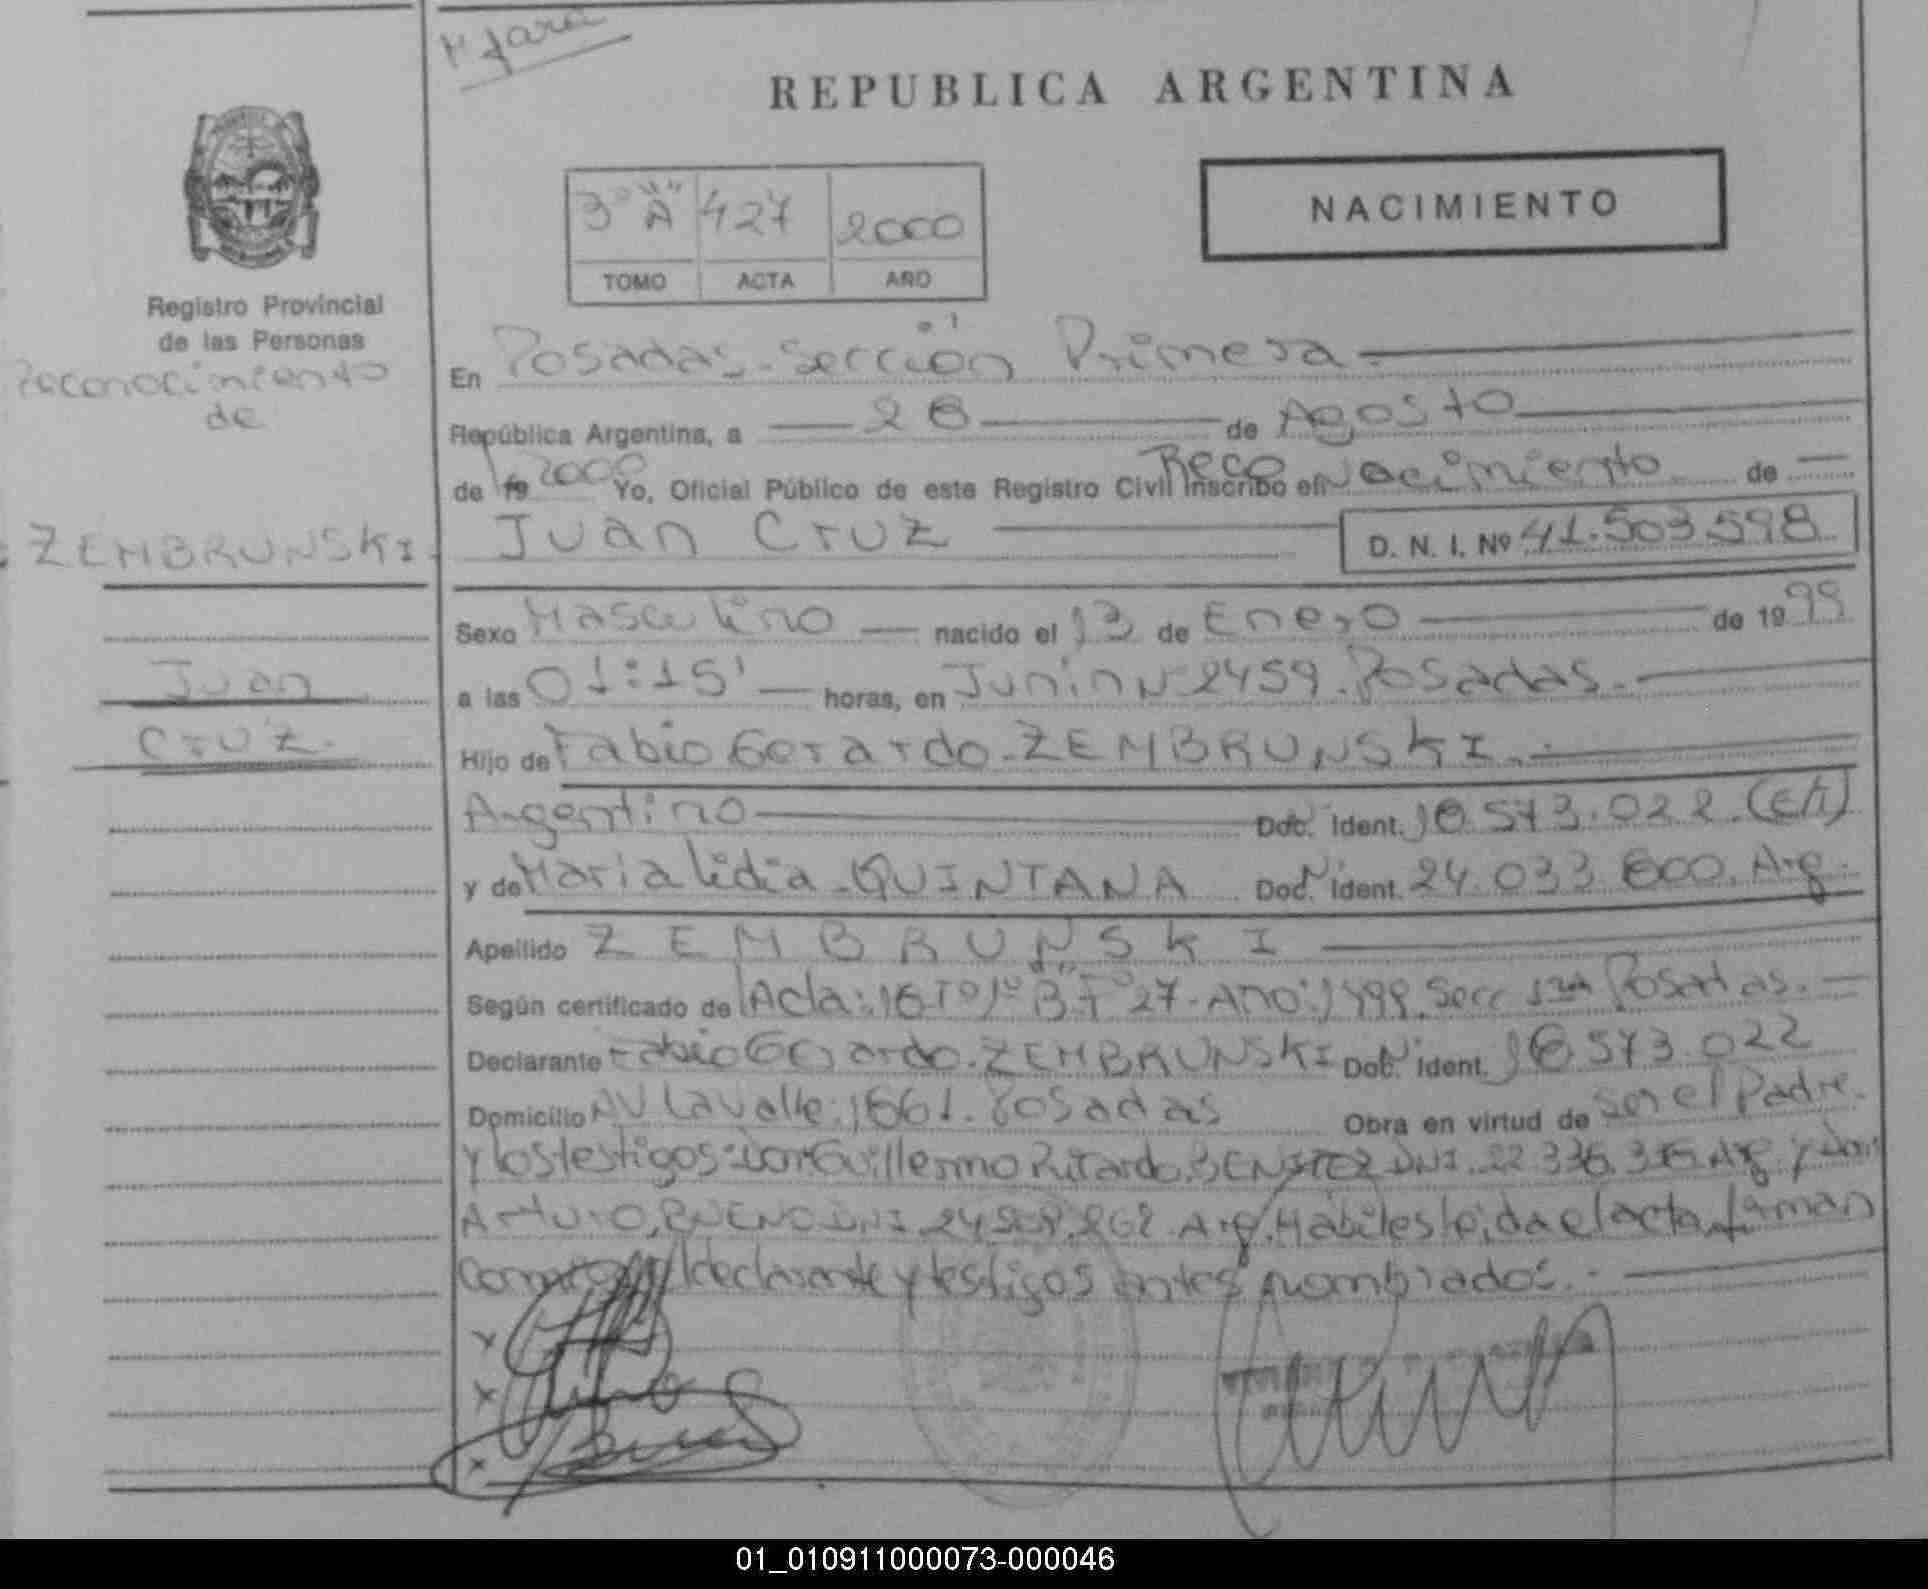 M Jara
REPUBLICA ARGENTINA
3° "A" 427 2000
TOMO ACTA AÑO
NACIMIENTO
Registro Provincial
de las Personas
Reconocimiento
de
ZEMBRUNSKI.
Juan
Cruz.
En Posadas - Sección Primera.
República Argentina, a 28 de Agosto
de 19 2000 Yo, Oficial Público de este Registro Civil inscribo el Reco Nacimiento de
Juan Cruz D. N. I. Nº 41.503.598
Sexo Masculino nacido el 13 de Enero de 1999
a las 01:15' horas, en Junin Nº 2459. Posadas.
Hijo de Fabio Gerardo - ZEMBRUNSKI.
Argentino Doc. Ident. 18.573.022. (Ch)
y de Maria Lidia - QUINTANA Doc. Ident. 24.033.800. Arg.
Apellido ZEMBRUNSKI
Según certificado de Acta: 16 Tº 1º "B" Fº 27 - Año: 1999. Secc 1ra Posadas.
Declarante Fabio Gerardo - ZEMBRUNSKI Doc. Ident. 18.573.022
Domicilio AV Lavalle: 1661. Posadas Obra en virtud de ser el Padre.
y los testigos: Don Guillermo Ricardo BENITEZ DNI. 22.336. Arg. y Don
Arturo, BUENO DNI. 24 Arg. Habiles leida el acta, firman
conmigo el declarante y testigos antes nombrados.
x
x
x
01_010911000073-000046